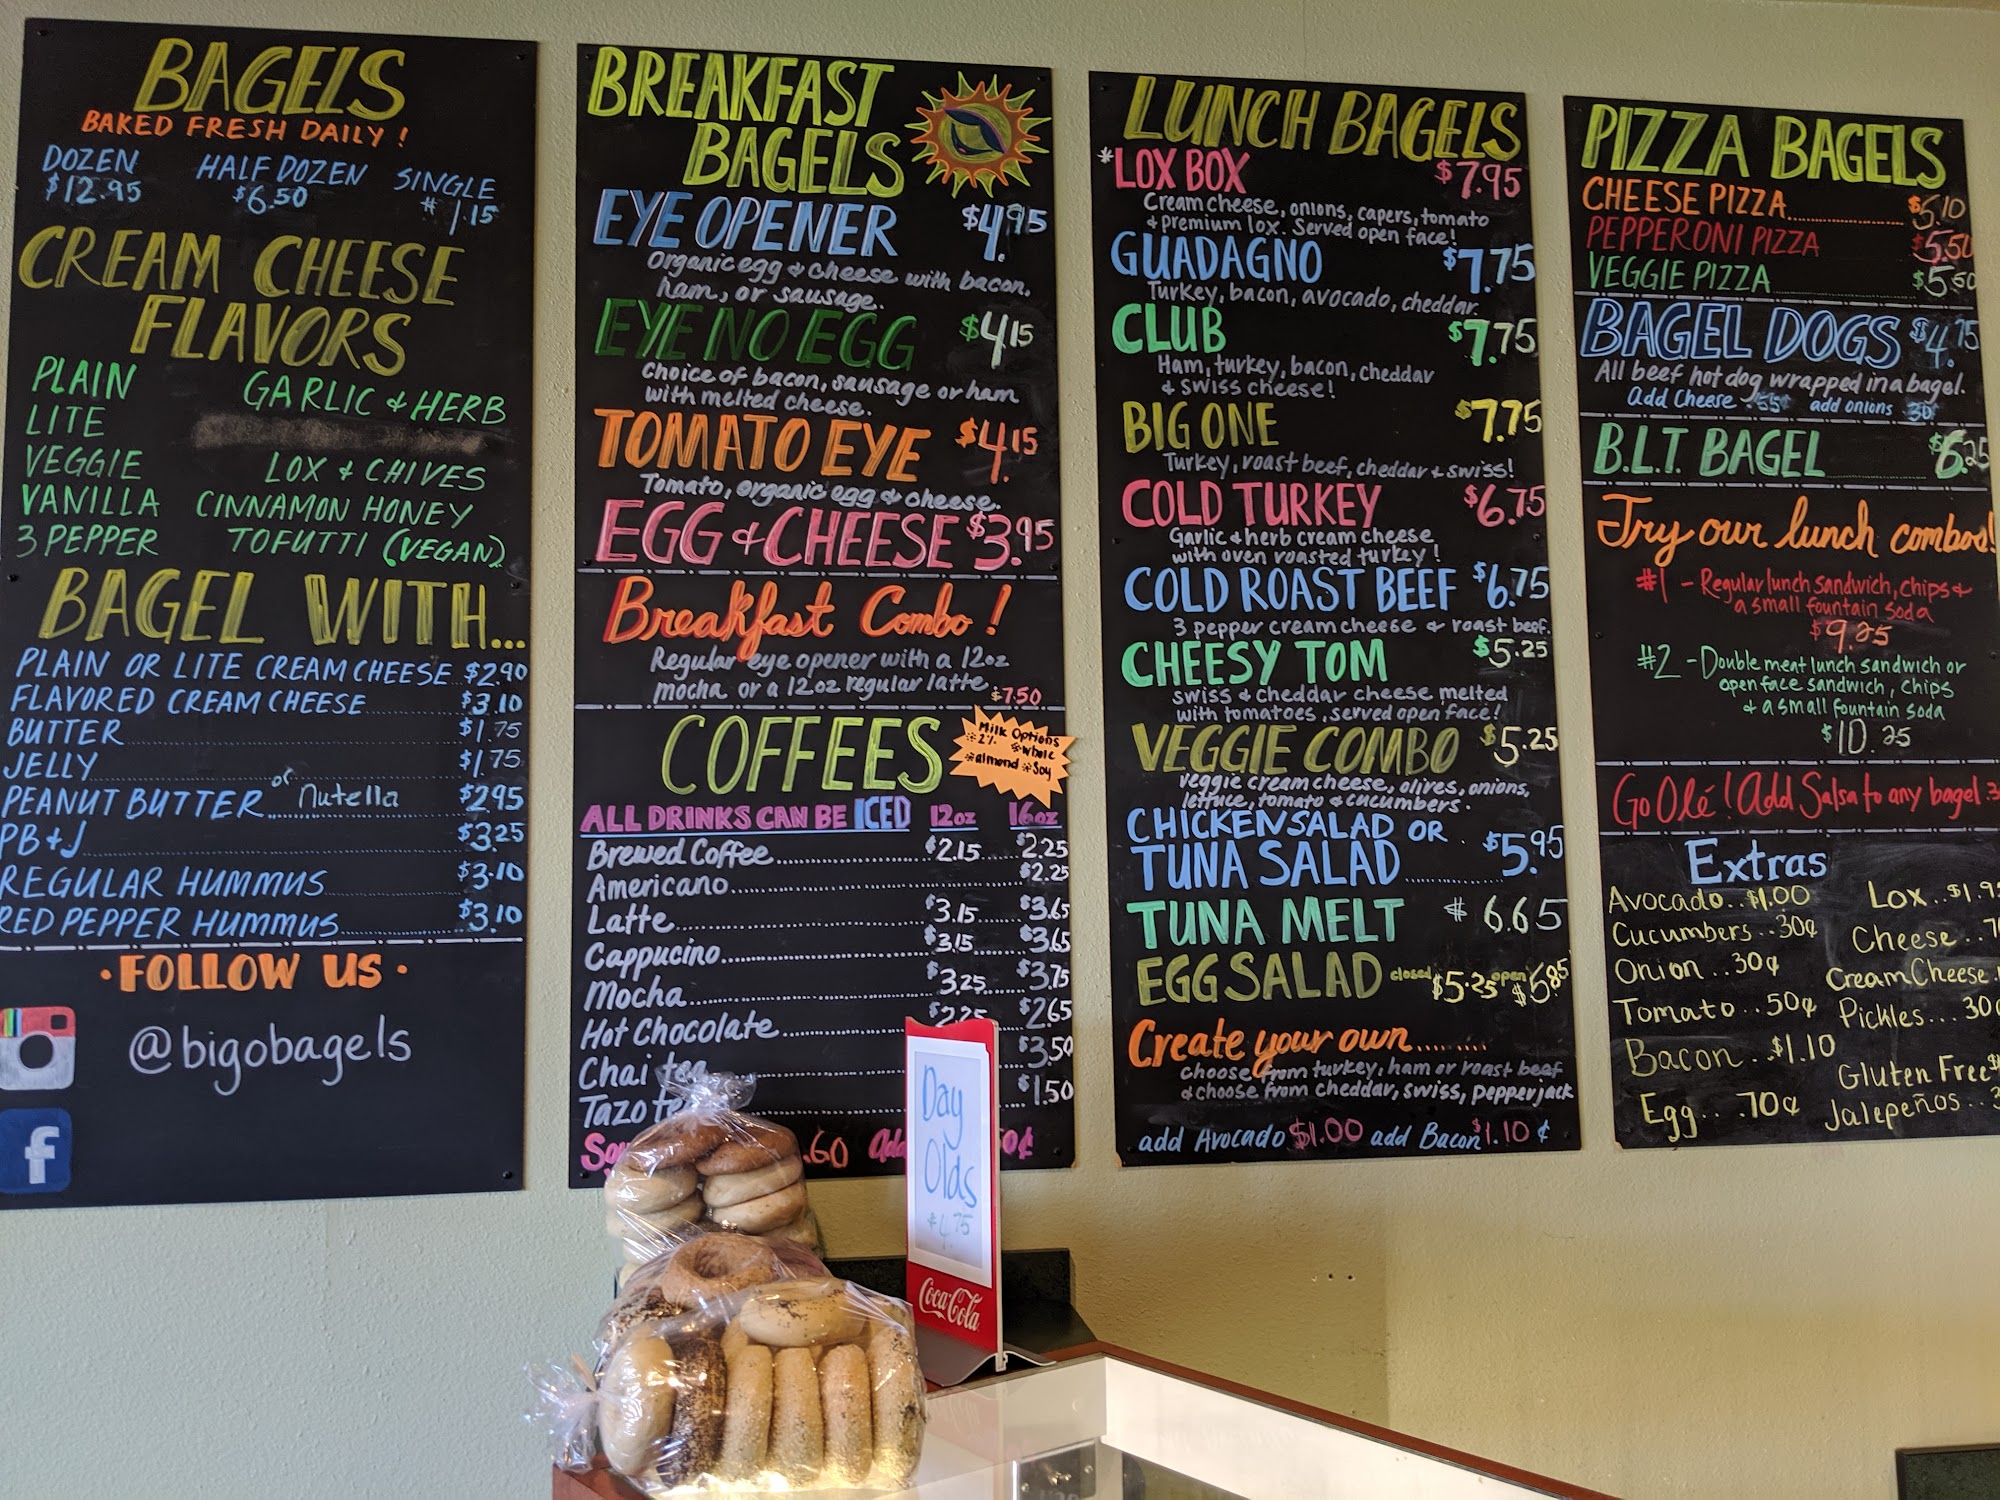 BAGELS
BAKED FRESH DAILY!
DOZEN HALF DOZEN SINGLE
$12.95 $6.50 # 1.15
CREAM CHEESE
FLAVORS
PLAIN GARLIC & HERB
LITE
VEGGIE LOX & CHIVES
VANILLA CINNAMON HONEY
3 PEPPER TOFUTTI (VEGAN)
BAGEL WITH...
PLAIN OR LITE CREAM CHEESE $2.90
FLAVORED CREAM CHEESE $3.10
BUTTER $1.75
JELLY $1.75
PEANUT BUTTER or Nutella $2.95
PB & J $3.25
REGULAR HUMMUS $3.10
RED PEPPER HUMMUS $3.10
• FOLLOW US •
@bigobagels
f
BREAKFAST
BAGELS
EYE OPENER $4.95
Organic egg & cheese with bacon,
ham, or sausage.
EYE NO EGG $4.15
Choice of bacon, sausage or ham
with melted cheese.
TOMATO EYE $4.15
Tomato, organic egg & cheese.
EGG & CHEESE $3.95
Breakfast Combo!
Regular eye opener with a 12oz
mocha or a 12oz regular latte. $7.50
COFFEES
Milk Options
*2% *whole
*almond *Soy
ALL DRINKS CAN BE ICED 12oz 16oz
Brewed Coffee $2.15 $2.25
Americano $2.25
Latte $3.15 $3.65
Cappucino $3.15 $3.65
Mocha $3.25 $3.75
Hot Chocolate $2.25 $2.65
Chai tea $3.50
Tazo te $1.50
.60 0¢
LUNCH BAGELS
*LOX BOX $7.95
Cream cheese, onions, capers, tomato
& premium lox. Served open face!
GUADAGNO $7.75
Turkey, bacon, avocado, cheddar.
CLUB $7.75
Ham, turkey, bacon, cheddar
& swiss cheese!
BIG ONE $7.75
Turkey, roast beef, cheddar & swiss!
COLD TURKEY $6.75
Garlic & herb cream cheese
with oven roasted turkey!
COLD ROAST BEEF $6.75
3 pepper cream cheese & roast beef.
CHEESY TOM $5.25
swiss & cheddar cheese melted
with tomatoes, served open face!
VEGGIE COMBO $5.25
veggie cream cheese, olives, onions,
lettuce, tomato & cucumbers.
CHICKEN SALAD OR
TUNA SALAD $5.95
TUNA MELT $6.65
EGG SALAD closed $5.25 open $6.85
Create your own
choose from turkey, ham or roast beef
& choose from cheddar, swiss, pepperjack
add Avocado $1.00 add Bacon $1.10 ¢
PIZZA BAGELS
CHEESE PIZZA $5.10
PEPPERONI PIZZA $5.50
VEGGIE PIZZA $5.50
BAGEL DOGS $4.75
All beef hot dog wrapped in a bagel.
add Cheese .55¢ add onions .30¢
B.L.T. BAGEL $6.25
Try our lunch combos!
#1 - Regular lunch sandwich, chips &
a small fountain soda
$9.25
#2 - Double meat lunch sandwich or
open face sandwich, chips
& a small fountain soda
$10.25
Go Olé! Add Salsa to any bagel
Extras
Avocado.. $1.00 Lox..$1.9
Cucumbers..30¢ Cheese..
Onion..30¢ Cream Cheese.
Tomato..50¢ Pickles...30¢
Bacon..$1.10 Gluten Free
Egg.. .70¢ Jalepeños..
Day
Olds
$4.75
Coca-Cola